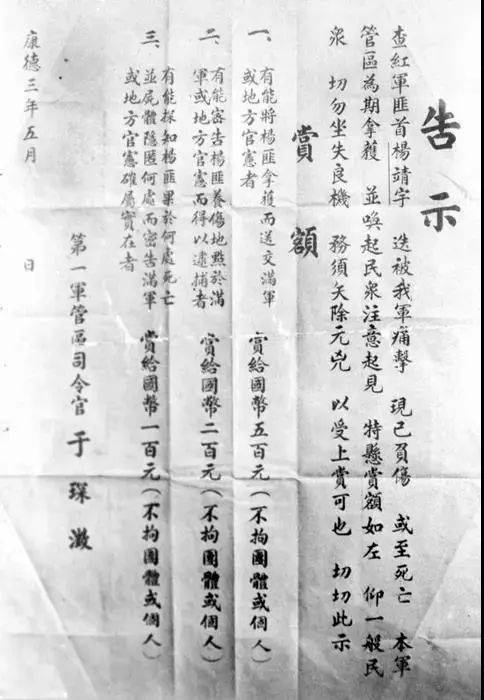 告示
查紅軍匪首楊靖宇 迭被我軍痛擊 現已負傷 或至死亡 本軍
管區為期拿獲 並喚起民衆注意起見 特懸賞額如左 仰一般民
衆 切勿坐失良機 務須矢除元兇 以受上賞可也 切切此示
賞額
一、有能將楊匪拿獲而送交滿軍
或地方官憲者 賞給國幣五百元(不拘團體或個人)
二、有能密告楊匪養傷地點於滿
軍或地方官憲而得以逮捕者 賞給國幣二百元(不拘團體或個人)
三、有能探知楊匪果於何處死亡
並屍體隱匿何處而密告滿軍
或地方官憲確屬實在者 賞給國幣一百元(不拘團體或個人)
第一軍管區司令官 于琛澂
康德三年五月 日